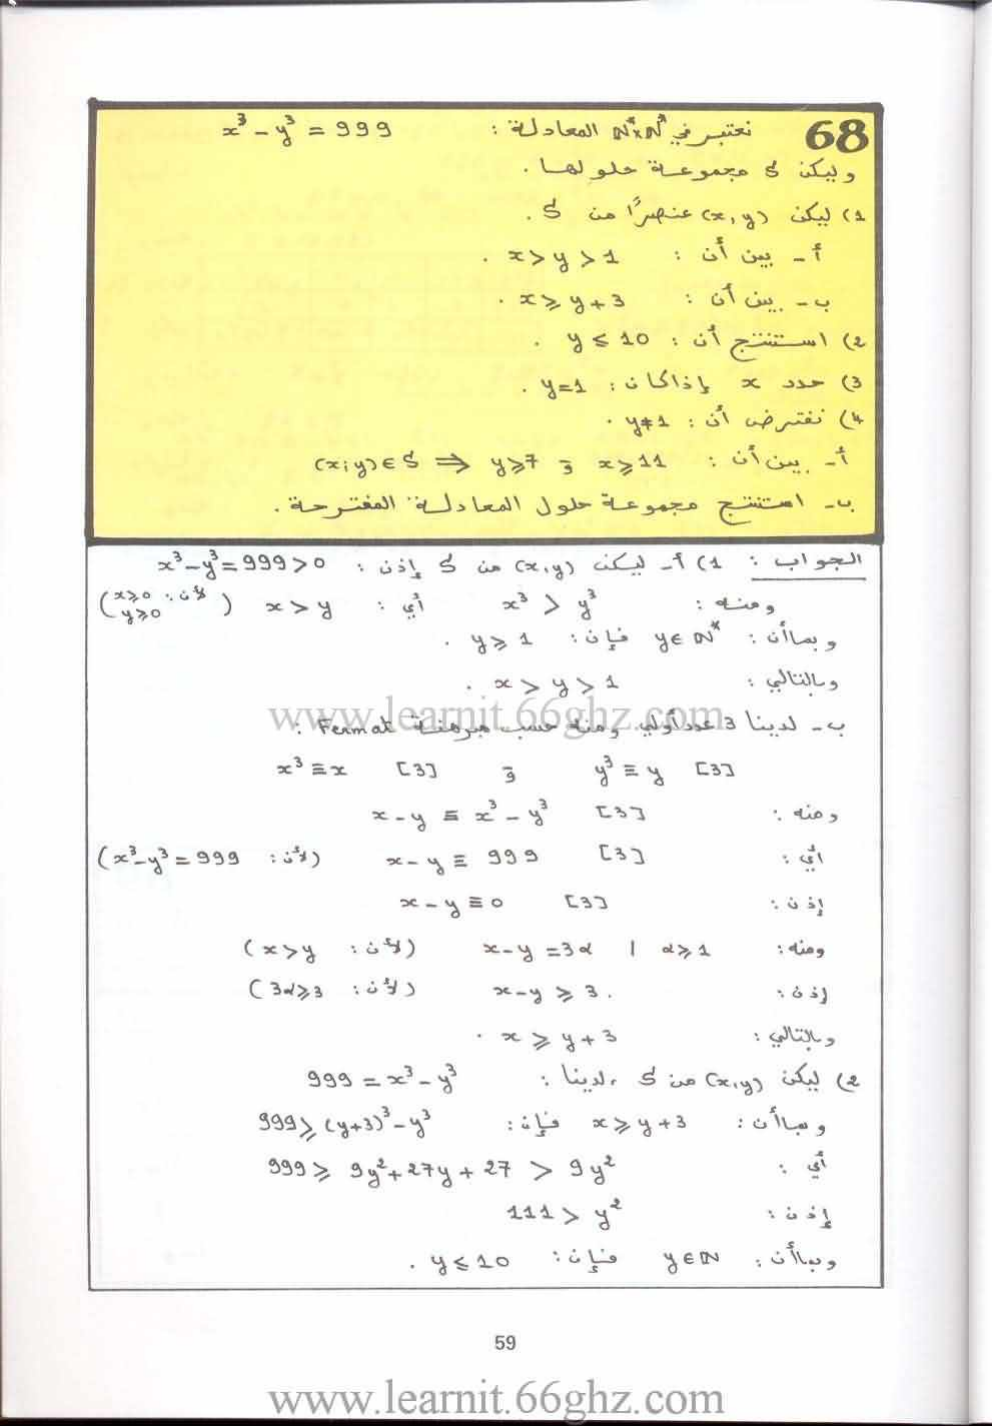 68 نعتبر في N*×N* المعادلة : x³ - y³ = 999
وليكن S مجموعة حلولها .
1) ليكن (x,y) عنصرًا من S .
أ - بين أن : x > y > 1 .
ب - بين أن : x ⩾ y + 3 .
2) استنتج أن : y ⩽ 10 .
3) حدد x إذا كان : y=1 .
4) نفترض أن : y≠1 .
أ - بين أن : (x;y) ∈ S ⟹ y⩾7 و x⩾11
ب - استنتج مجموعة حلول المعادلة المقترحة .
الجواب : 1) أ - ليكن (x,y) من S إذن : x³-y³=999>0
ومنه : x³ > y³ أي : x > y (لأن : x⩾0 y⩾0)
وبما أن : y ∈ N* فإن : y ⩾ 1 .
وبالتالي : x > y > 1 .
ب - لدينا 3 عدد أولي ومنه حسب مبرهنة Fermat :
x³ ≡ x [3] و y³ ≡ y [3]
ومنه : x-y ≡ x³-y³ [3]
أي : x-y ≡ 999 [3] (لأن : x³-y³=999)
إذن : x-y ≡ 0 [3]
ومنه : x-y = 3α | α⩾1 (لأن : x>y)
إذن : x-y ⩾ 3 . (لأن : 3α⩾3)
وبالتالي : x ⩾ y + 3 .
2) ليكن (x,y) من S ، لدينا : 999 = x³-y³
وبما أن : x ⩾ y+3 فإن : 999 ⩾ (y+3)³-y³
أي : 999 ⩾ 9y²+27y+27 > 9y²
إذن : 111 > y²
وبما أن : y ∈ N فإن : y ⩽ 10 .
59
www.learnit.66ghz.com
www.learnit.66ghz.com